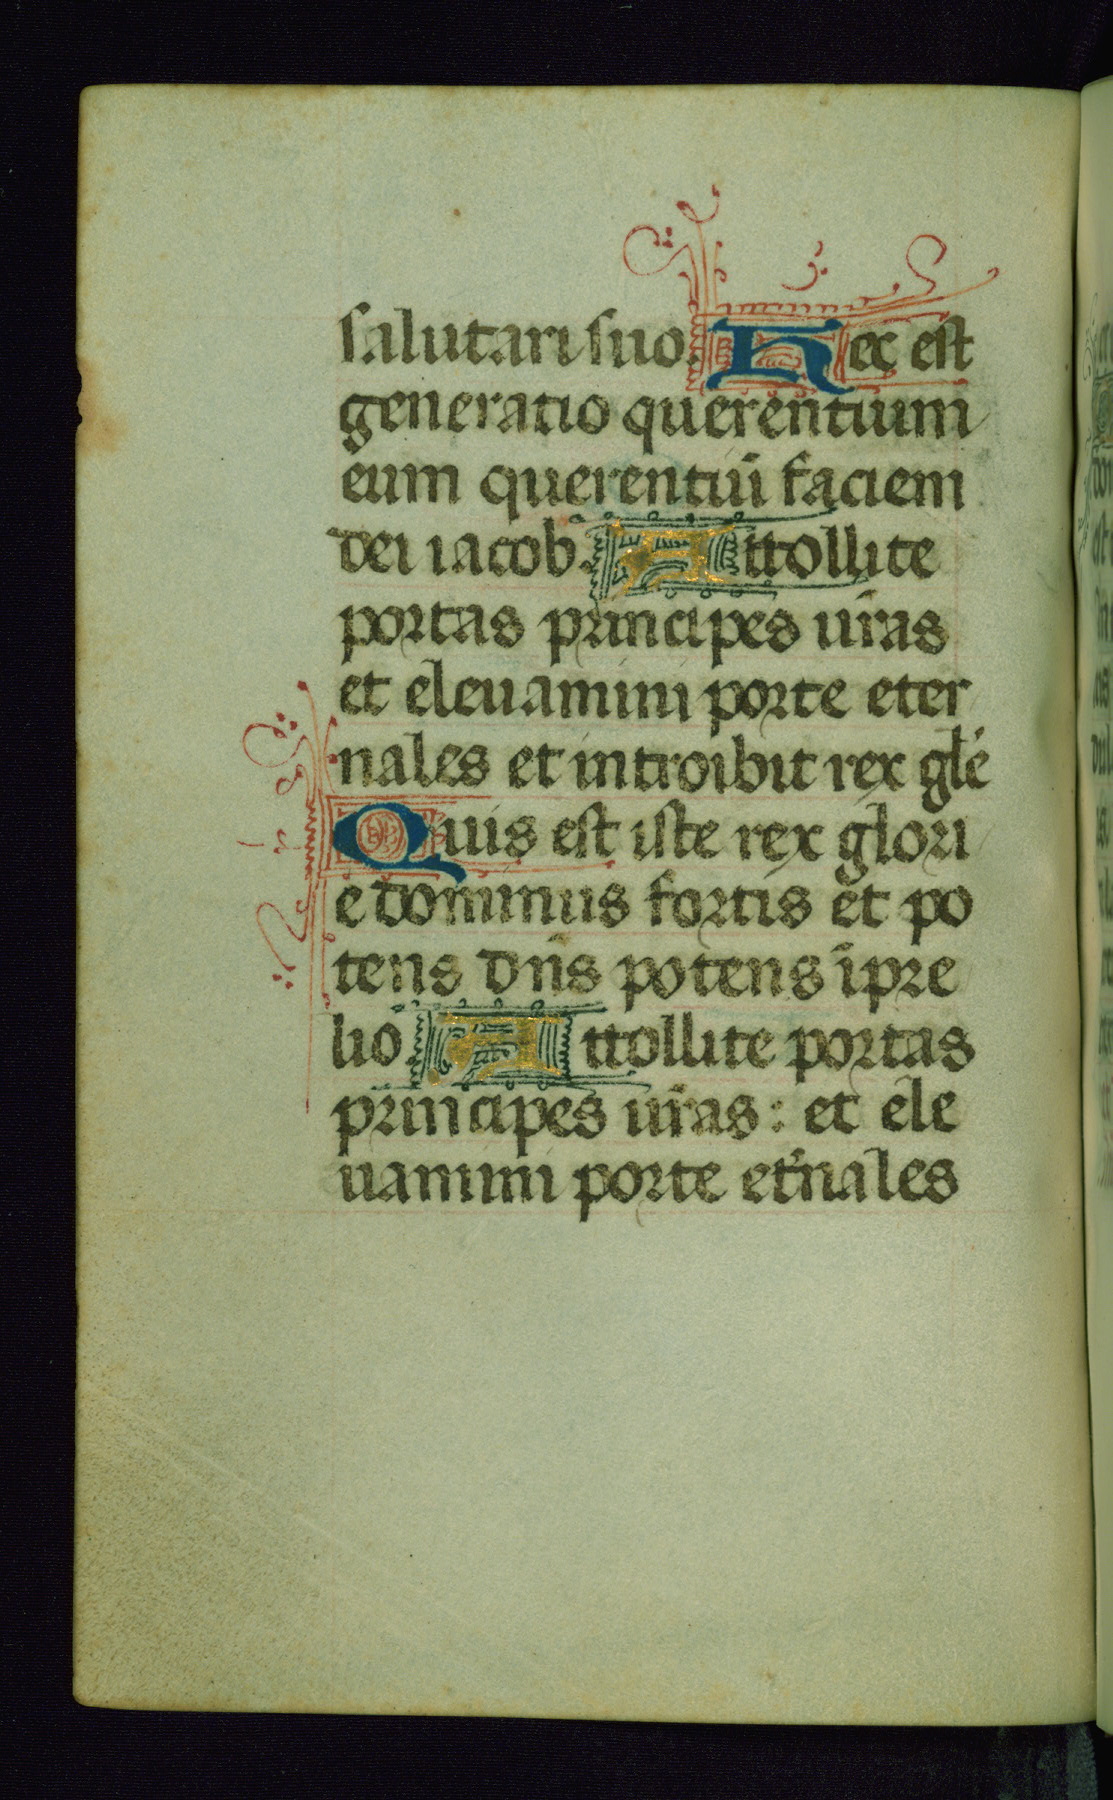 salutari suo. Hec est
generatio querentium
eum querentiū faciem
dei iacob. Attollite
portas principes uṙas
et eleuamini porte eter
nales et introibit rex glē
Quis est iste rex glori
e dominus fortis et po
tens dn̄s potens ī pre
lio. Attollite portas
principes uṙas : et ele
uamini porte et̄nales